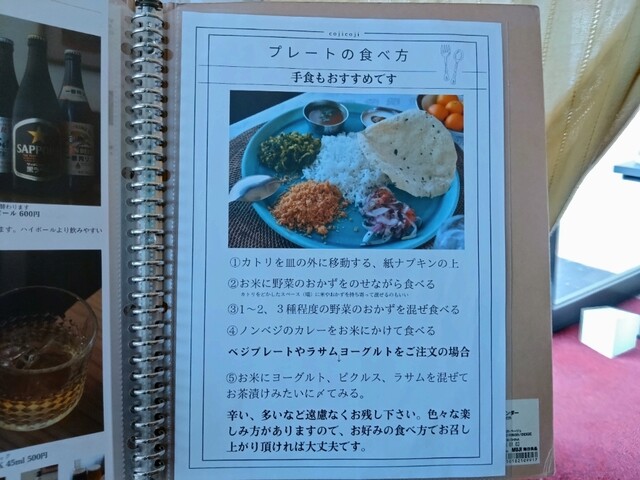 cojicoji
プレートの食べ方
手食もおすすめです
①カトリを皿の外に移動する、紙ナプキンの上
②お米に野菜のおかずをのせながら食べる
③1～2、3種程度の野菜のおかずを混ぜ食べる
④ノンベジのカレーをお米にかけて食べる
ベジプレートやラサムヨーグルトをご注文の場合
↓
⑤お米にヨーグルト、ピクルス、ラサムを混ぜて
お茶漬けみたいに〆てみる。
辛い、多いなど遠慮なくお残し下さい。色々な楽
しみ方がありますので、お好みの食べ方でお召し
上がり頂ければ大丈夫です。
SAPPORO
変わります
ール 600円
ます。ハイボールより飲みやすい
45ml 500円
MUJI